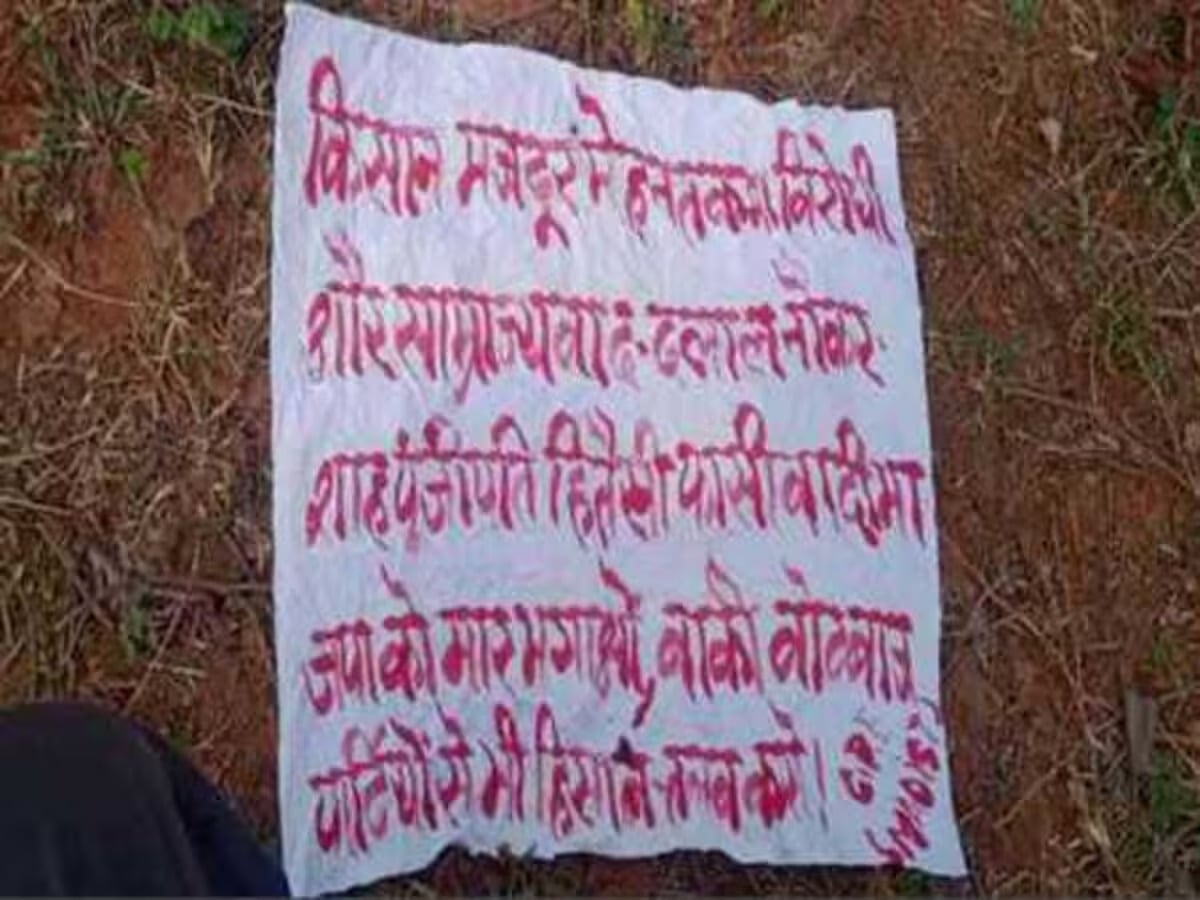 किसान मजदूर मेहनतकश विरोधी
और साम्राज्यवाद-दलाल नौकर-
शाह पूंजीपति हितैसी फासीवादी भा
जपा को मार भगाओ, बाकी वोटबाज
पार्टियों से भी हिसाब-तलब करें।